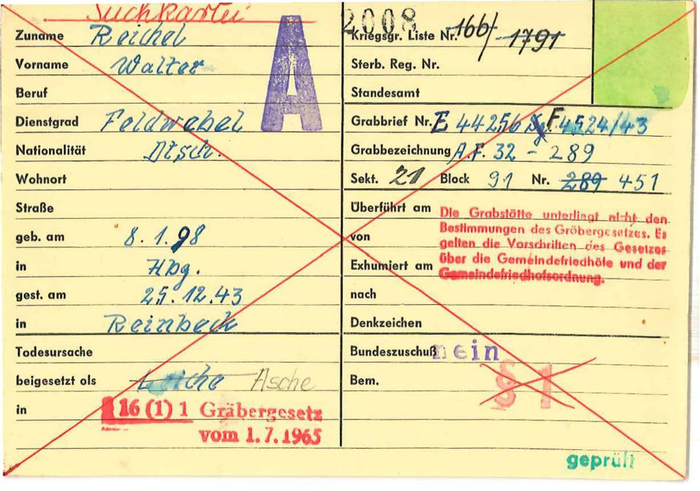 Suchkartei
Zuname Reichel
Vorname Walter
Beruf
Dienstgrad Feldwebel
Nationalität Dtsch.
Wohnort
Straße
geb. am 8.1.98
in Hbg.
gest. am 25.12.43
in Reinbeck
Todesursache
beigesetzt als Leiche Asche
in
§ 16 (1) 1 Gräbergesetz
vom 1.7.1965
A
2008
Kriegsgr. Liste Nr. 166/ 1791
Sterb. Reg. Nr.
Standesamt
Grabbrief Nr. E 44256 F 4524/43
Grabbezeichnung A.F. 32 - 289
Sekt. 21 Block 91 Nr. 289 451
Überführt am
von
Exhumiert am
nach
Die Grabstätte unterliegt nicht den
Bestimmungen des Gräbergesetzes. Es
gelten die Vorschriften des Gesetzes
über die Gemeindefriedhöfe und der
Gemeindefriedhofsordnung.
Denkzeichen
Bundeszuschuß nein
Bem. § 1
geprüft